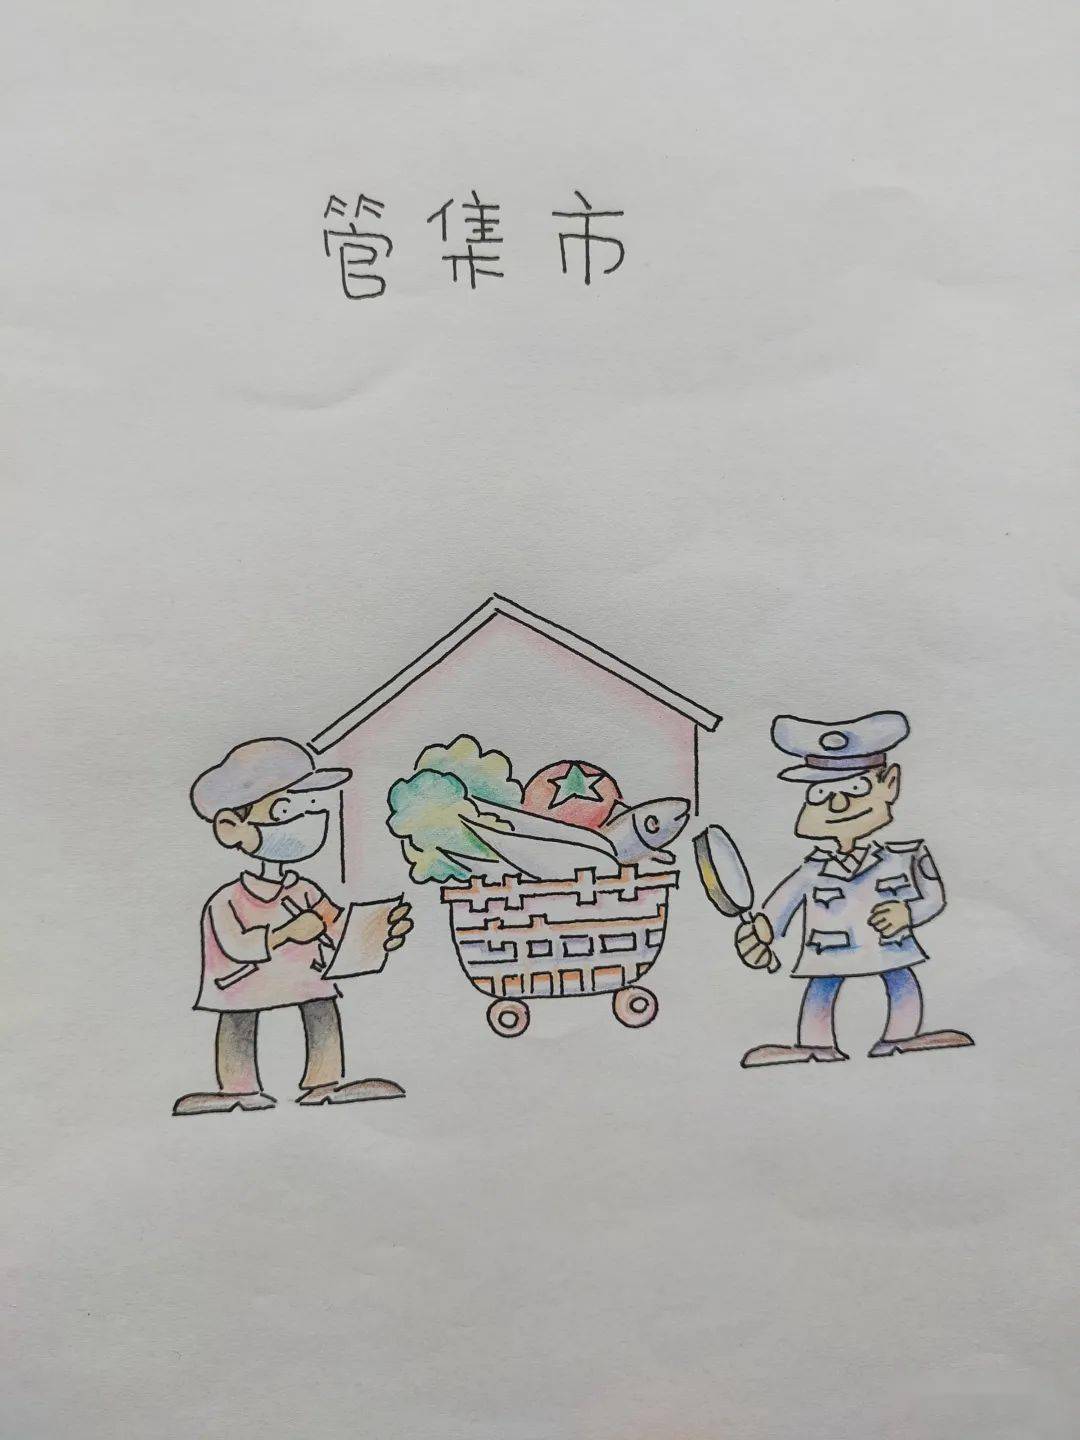 管集市